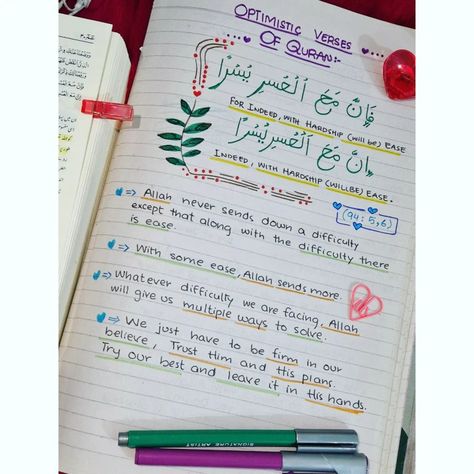 OPTIMISTIC VERSES
OF QURAN:-
فَإِنَّ مَعَ الْعُسْرِ يُسْرًا
FOR INDEED, WITH HARDSHIP (will be) EASE
إِنَّ مَعَ الْعُسْرِ يُسْرًا
INDEED, WITH HARDSHIP (WILL BE) EASE.
(94:5,6)
⇒ Allah never sends down a difficulty
except that along with the difficulty there
is ease.
⇒ With some ease, Allah sends more.
⇒ Whatever difficulty we are facing, Allah
will give us multiple ways to solve.
⇒ We just have to be firm in our
believe, Trust Him and His plans.
Try our best and leave it in His hands.
SIGNATURE ARTIST